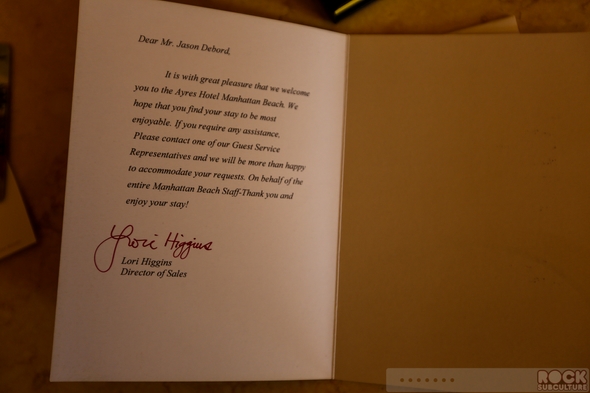 Dear Mr. Jason Debord,
It is with great pleasure that we welcome
you to the Ayres Hotel Manhattan Beach. We
hope that you find your stay to be most
enjoyable. If you require any assistance.
Please contact one of our Guest Service
Representatives and we will be more than happy
to accommodate your requests. On behalf of the
entire Manhattan Beach Staff-Thank you and
enjoy your stay!
Lori Higgins
Lori Higgins
Director of Sales
ROCK
SUBCULTURE